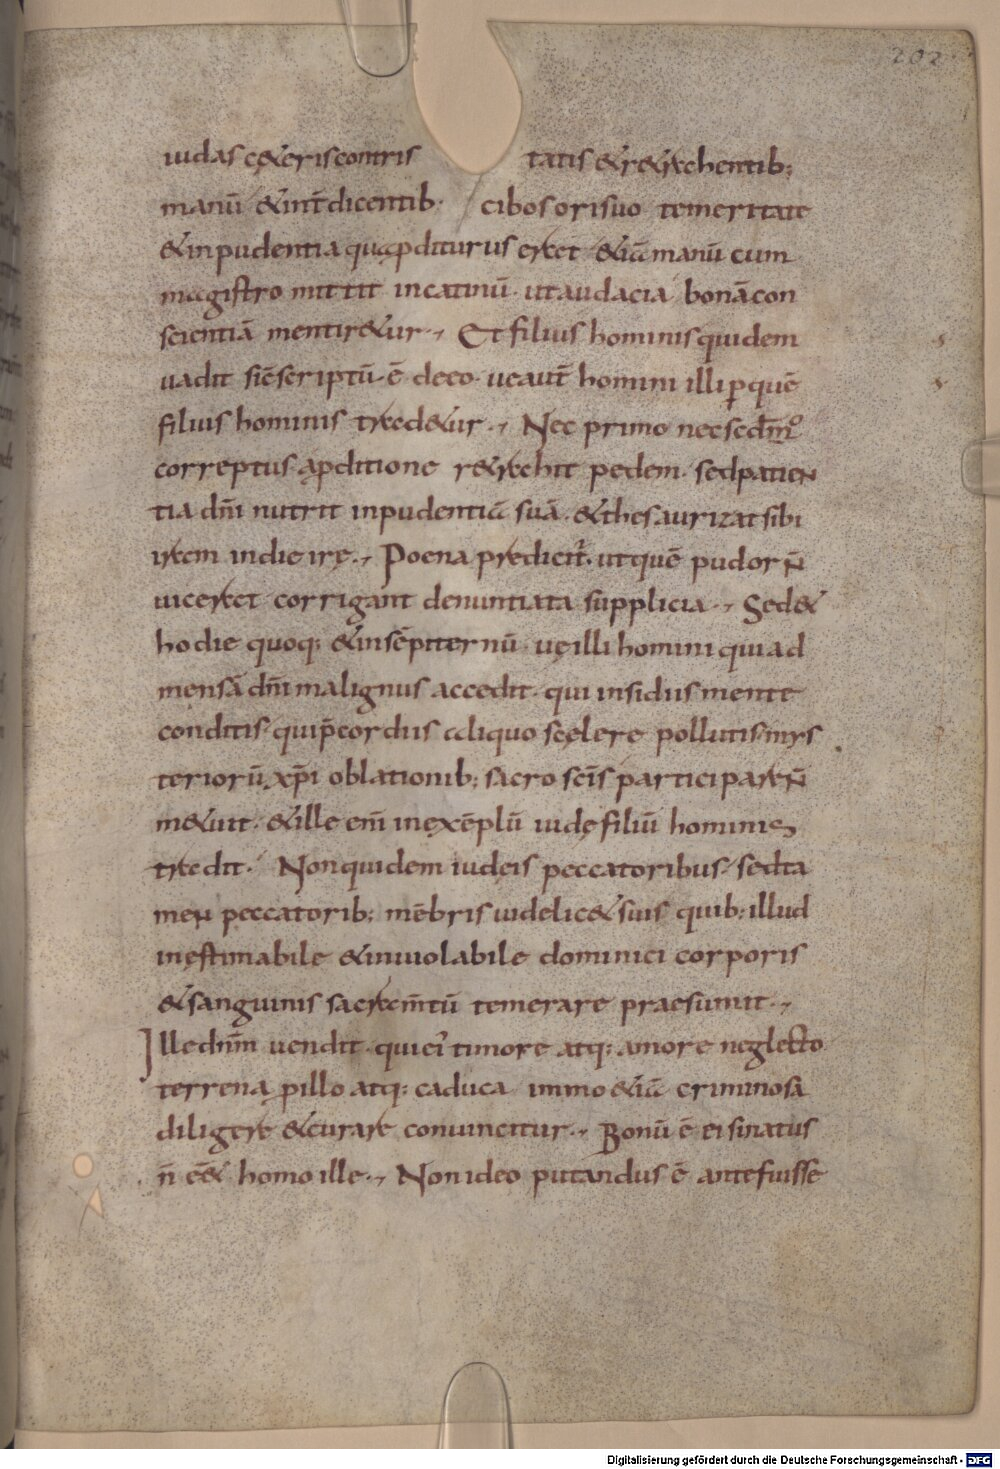 202
iudas cęteris contris tatis & retrahentib;
manū & int̄dicentib· cibos ori suo temeritate
& inpudentia quaꝓditurus erat &iā manū cum
magistro mittit in catinū· ut audacia bonā con
scientiā mentiret&ur·, Et filius hominis quidem
uadit sic̄ scriptū· ē de eo· ue aut̄ homini illi ꝑ quē
filius hominis traded&ur·, Nec primo nec sed̄mo
correptus· a ꝓditione r&rahit pedem· sed patien
tia dn̄i nutrit inpudentiā suā· & thesaurizat sibi
iram in die irę·, Poena predicit̄· ut quē pudor n̄
uicerat corrigant denuntiata supplicia·, Sed &
hodie quoq; & in sēpiternū· uę illi homini qui ad
mensā dn̄i malignus accedit· qui insidiis mente
conditis· qui p̄cordiis aliquo scęlere pollutis· mys
teriorū xp̄i oblationib; sacro scīs participare n̄
m&uit· & ille eni̅ in exēplū iudę filiū hominis
tradit· Non quidem iudęis peccatoribus· sed ta
men peccatorib; mēbris uidelic& suis quib; illud
inęstimabile & inuiolabile dominici corporis
& sanguinis sacram̄tū temerare praesumit·,
Ille dn̄m uendit· qui ei' timore atq; amore neglecto
terrena ꝓ illo atq; caduca immo &iā criminosa
diligere & curare conuincitur·, Bonū ē ei si natus
n̄ eē& homo ille·, Non ideo putandus ē ante fuisse
Digitalisierung gefördert durch die Deutsche Forschungsgemeinschaft - DFG